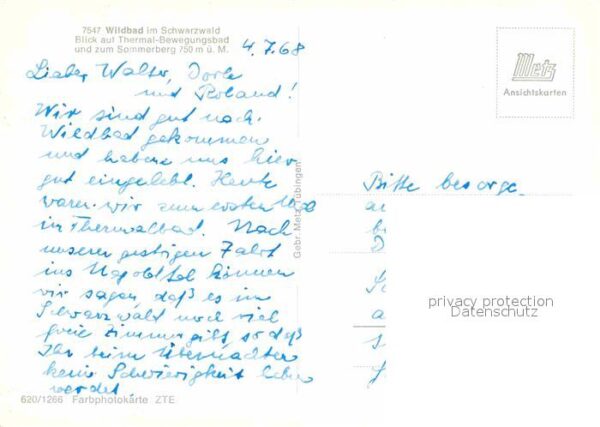 7547 Wildbad im Schwarzwald
Blick auf Thermal-Bewegungsbad
und zum Sommerberg 750 m ü. M.
4.7.68
Lieber Walter, Dorle
und Roland!
Wir sind gut nach
Wildbad gekommen
und haben uns hier
gut eingelebt. Heute
waren wir zum ersten Mal
in Thermalbad. Nach
unserer gestrigen Fahrt
ins Nagoldtal können
wir sagen, daß es im
Schwarzwald noch viel
freie Zimmer gibt, so daß
Ihr beim Übernachten
keine Schwierigkeit haben
werdet.
620/1266 Farbphotokarte ZTE
Gebr. Metz, Tübingen
Metz
Ansichtskarten
Bitte besorge
privacy protection
Datenschutz